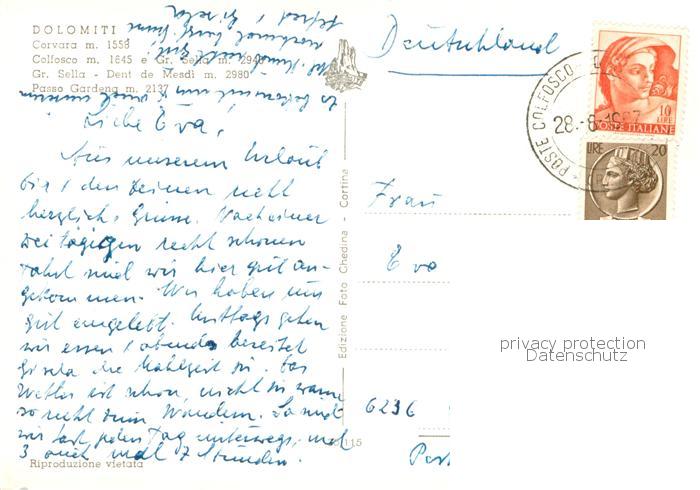 DOLOMITI
Corvara m. 1558
Colfosco m. 1645 e Gr. Sella m. 2940
Gr. Sella - Dent de Mesdì m. 2980
Passo Gardena m. 2137
Liebe Eva,
Aus unserem Urlaub
Dir & den Deinen recht
herzliche Grüsse. Nach einer
zweitägigen recht schönen
Fahrt sind wir hier gut an-
gekommen. Wir haben uns
gut eingelebt. Mittags gehen
wir essen & abends bereitet
Gisela die Mahlzeit zu. Das
Wetter ist schön, nicht zu warm
so recht zum Wandern. So sind
wir fast jeden Tag unterwegs, mal
3 auch mal 7 Stunden.
Alfred & Gisela
Riproduzione vietata
Edizione Foto Ghedina - Cortina
115
Deutschland
10
LIRE
POSTE ITALIANE
LIRE 20
POSTE COLFOSCO
28.-8.-1967
Frau
Eva
6236
privacy protection
Datenschutz